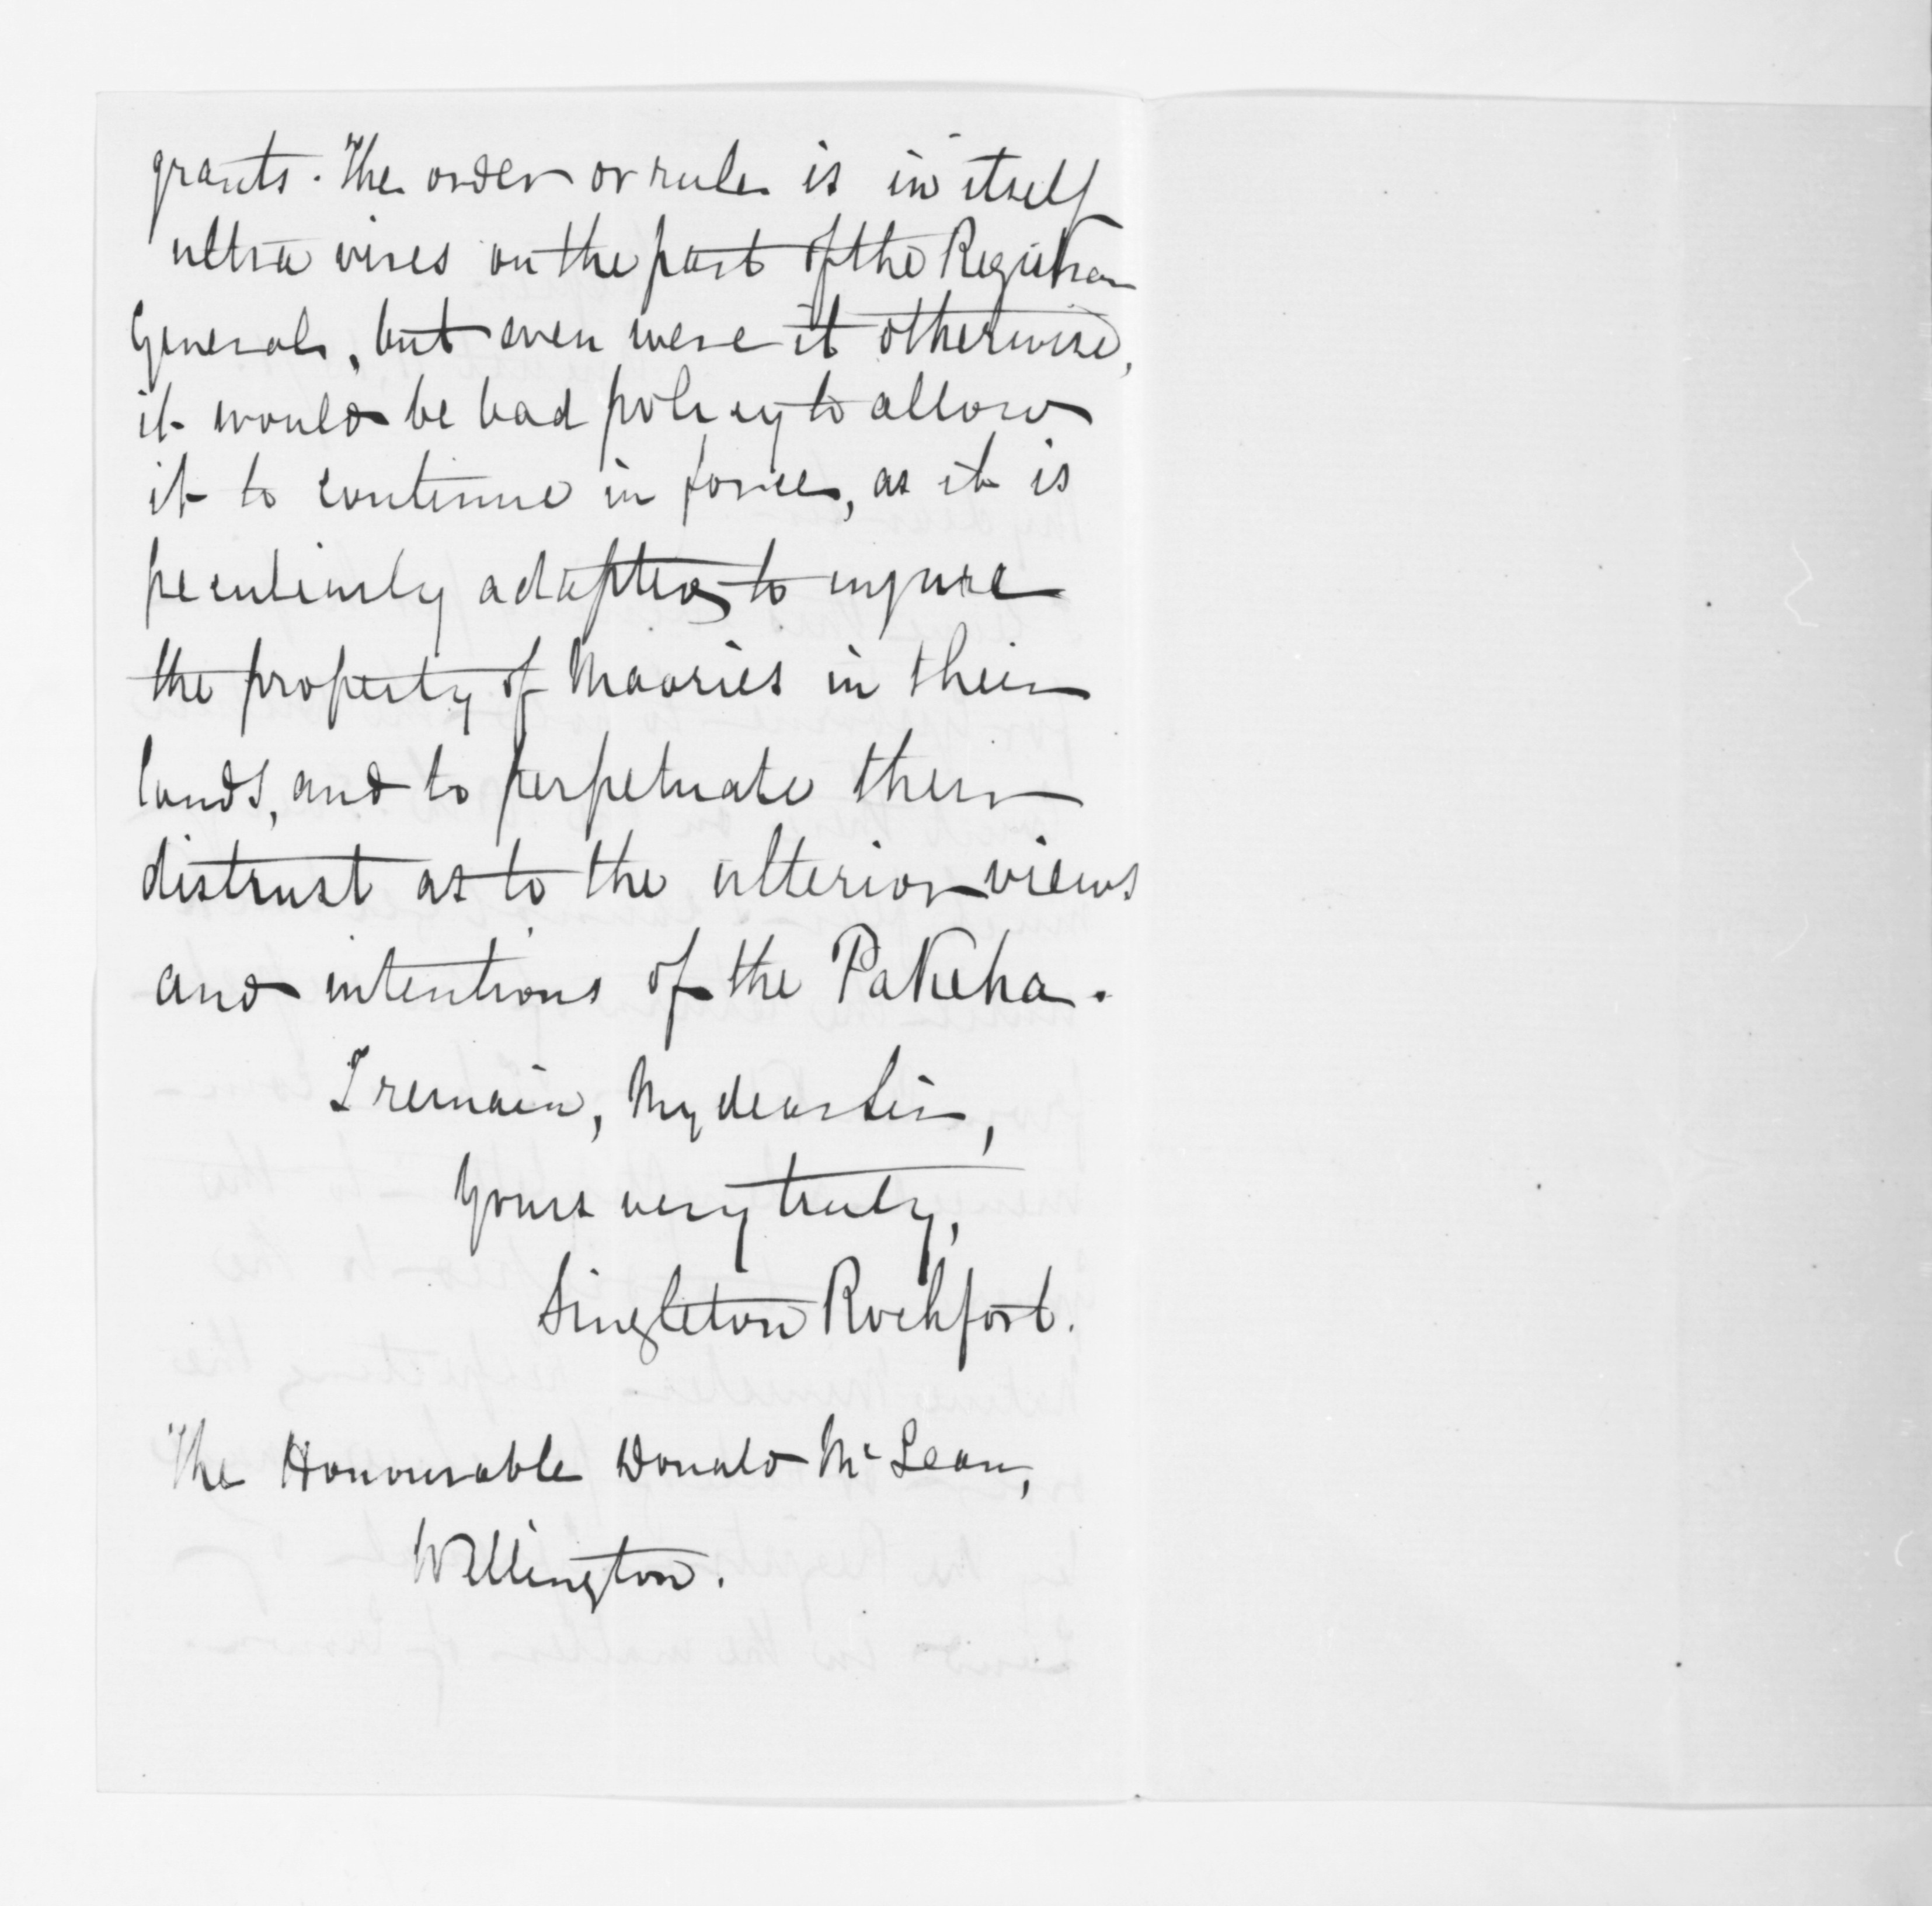 grants. The order or rule is in itself
ultra vires on the part of the Registrar
General, but even were it otherwise,
it would be bad policy to allow
it to continue in force, as it is
peculiarly adapted to injure
the property of Maories in their
lands, and to perpetuate their
distrust as to the ulterior views
and intentions of the Pakeha.
I remain, My dear Sir,
Yours very truly,
Singleton Rochfort.
The Honourable Donald McLean,
Wellington.